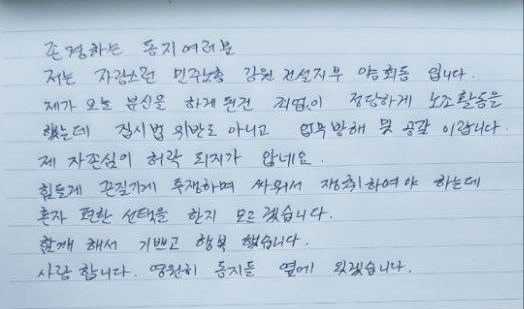 존경하는 동지여러분
저는 자랑스런 민주노총 강원 건설지부 양회동 입니다.
제가 오늘 분신을 하게된건 죄없이 정당하게 노조활동을
했는데 집시법 위반도 아니고 업무방해 및 공갈 이랍니다.
제 자존심이 허락 되지가 않네요.
힘들게 끈질기게 투쟁하며 싸워서 쟁취하여야 하는데
혼자 편한 선택을 한지 모르겠습니다.
함께 해서 기쁘고 행복 했습니다.
사랑 합니다. 영원히 동지들 옆에 있겠습니다.